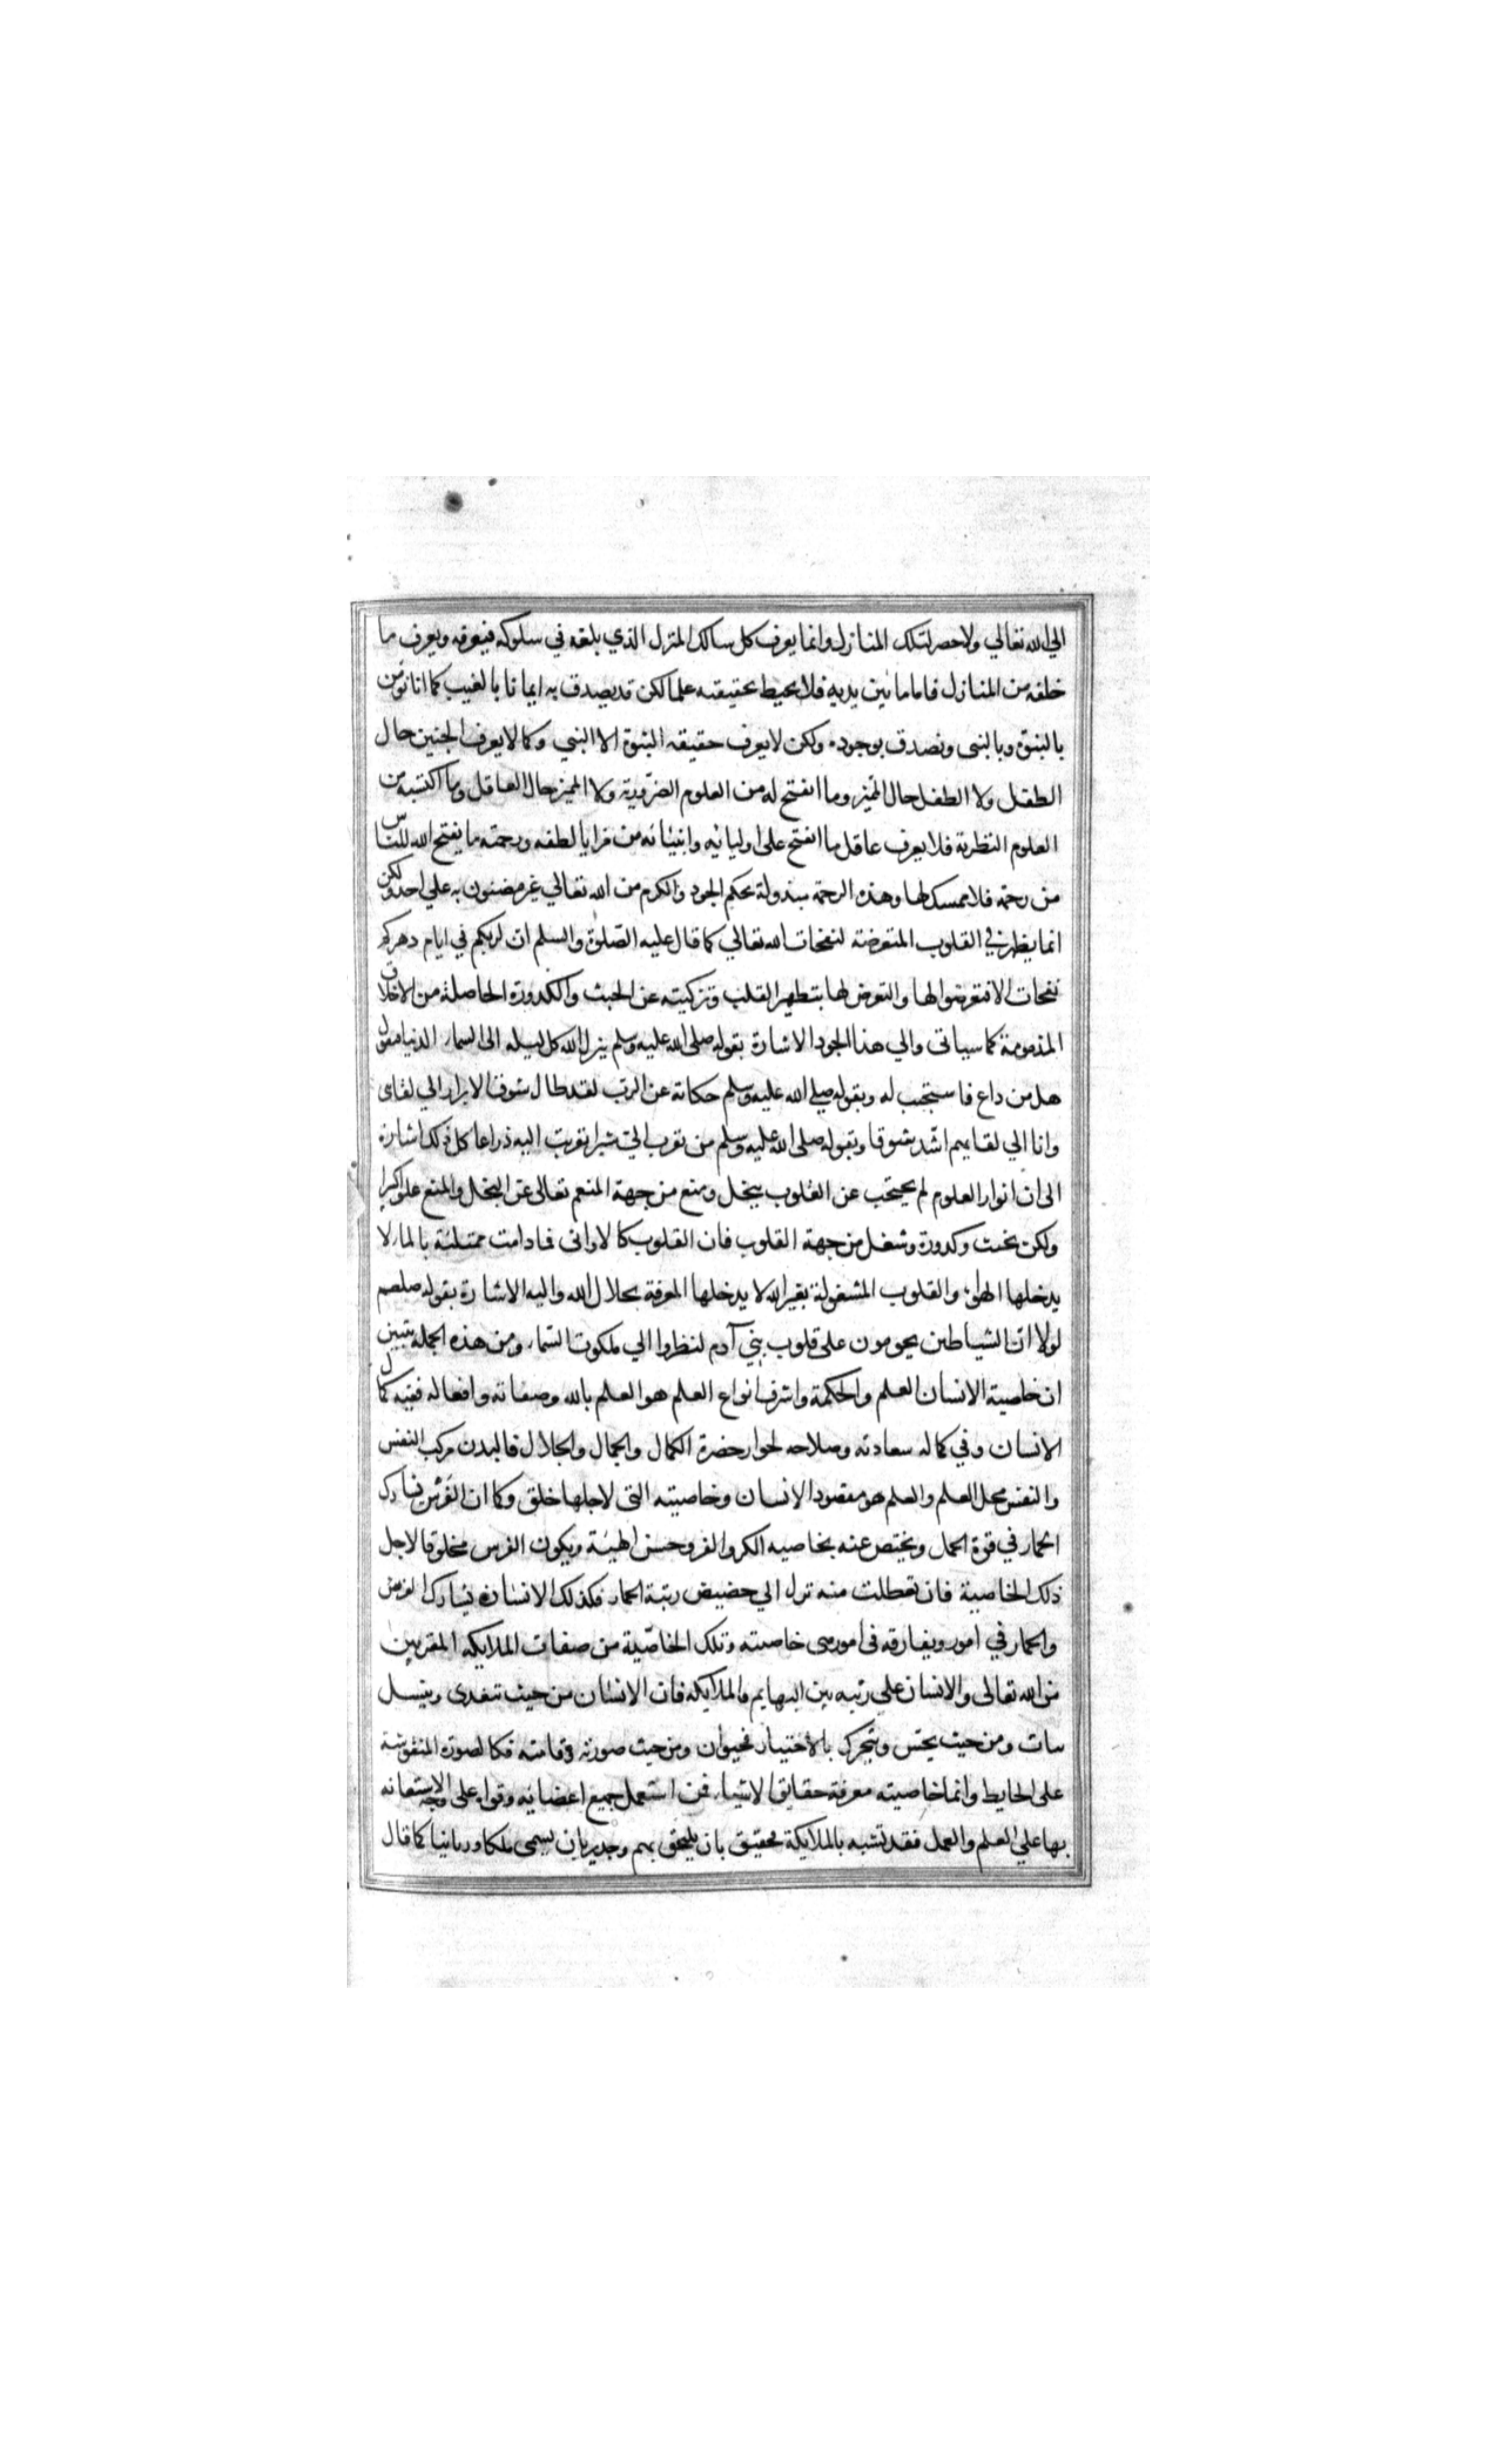 الي الله تعالي ولا حصر لتلك المنازل وانما يعرف كل سالك المنزل الذي بلغه في سلوكه فيعرفه ويعرف ما
خلفه من المنازل فاما ما بين يديه فلا يحيط بحقيقته علما لكن قد يصدق به ايمانا بالغيب كما انا نؤمن
بالنبوة وبالنبى ونصدق بوجوده ولكن لا يعرف حقيقه النبوة الا النبي وكما لا يعرف الجنين حال
الطفل ولا الطفل حال المميز وما انفتح له من العلوم الضرورية ولا المميز حال العاقل وما اكتسبه من
العلوم النظرية فلا يعرف عاقل ما انفتح على اوليائه وانبيائه من مزايا لطفه ورحمته ما يفتح الله للناس
من رحمة فلا ممسك لها وهذه الرحمة مبذولة بحكم الجود والكرم من الله تعالي غير مضنون به علي احد ولكن
انما يظهر في القلوب المتعرضة لنفحات الله تعالي كما قال عليه الصلوة والسلم ان لربكم في ايام دهركم
نفحات الا فتعرضوا لها والتعرض لها بتطهير القلب وتزكيته عن الخبث والكدورة الحاصلة من الاخلاق
المذمومة كما سياتى والي هذا الجود الاشارة بقوله صلى الله عليه وسلم ينزل الله كل ليله الى السماء الدنيا فيقول
هل من داع فاستجيب له وبقوله صلي الله عليه وسلم حكاية عن الرب لقد طال شوق الابرار الي لقاى
وانا الي لقايهم اشد شوقا وبقوله صلى الله عليه وسلم من تقرب الى شبرا تقربت اليه ذراعا كل ذلك اشارة
الى ان انوار العلوم لم يحتجب عن القلوب ببخل ومنع من جهة المنعم تعالى عن البخل والمنع علوا كبيرا
ولكن بخبث وكدورة وشغل من جهة القلوب فان القلوب كالاوانى فما دامت ممتلئة بالماء لا
يدخلها الهواء والقلوب المشغولة بغير الله لا يدخلها المعرفة بجلال الله واليه الاشارة بقوله صلعم
لولا ان الشياطين يحومون على قلوب بني آدم لنظروا الي ملكوت السماء ومن هذه الجملة يتبين
ان خاصية الانسان العلم والحكمة واشرف انواع العلم هو العلم بالله وصفاته وافعاله ففيه كمال
الانسان وفي كماله سعادته وصلاحه لجوار حضرة الكمال والجمال والجلال فالبدن مركب النفس
والنفس محل العلم والعلم هو مقصود الانسان وخاصيته التى لاجلها خلق وكما ان الفرس يشارك
الحمار في قوة الحمل ويختص عنه بخاصيه الكر والفر وحسن الهيئة ويكون الفرس مخلوقا لاجل
ذلك الخاصية فان تعطلت منه نزل الي حضيض رتبة الحمار فكذلك الانسان يشارك الفرس
والحمار في امور ويفارقه فى امور هى خاصيته وتلك الخاصية من صفات الملايكه المقربين
من الله تعالى والانسان علي رتبه بين البهايم والملايكه فان الانسان من حيث تتغدى وينسل
نبات ومن حيث يحس ويتحرك بالاختيار فحيوان ومن حيث صورته وقامته فكالصورة المنقوشة
على الحايط وانما خاصيته معرفة حقايق الاشياء فمن استعمل جميع اعضائه وقواه على وجه الاستعانه
بها علي العلم والعمل فقد تشبه بالملايكة فحقيق بان يلحق بهم وجدير بان يسمى ملكا وربانيا كما قال